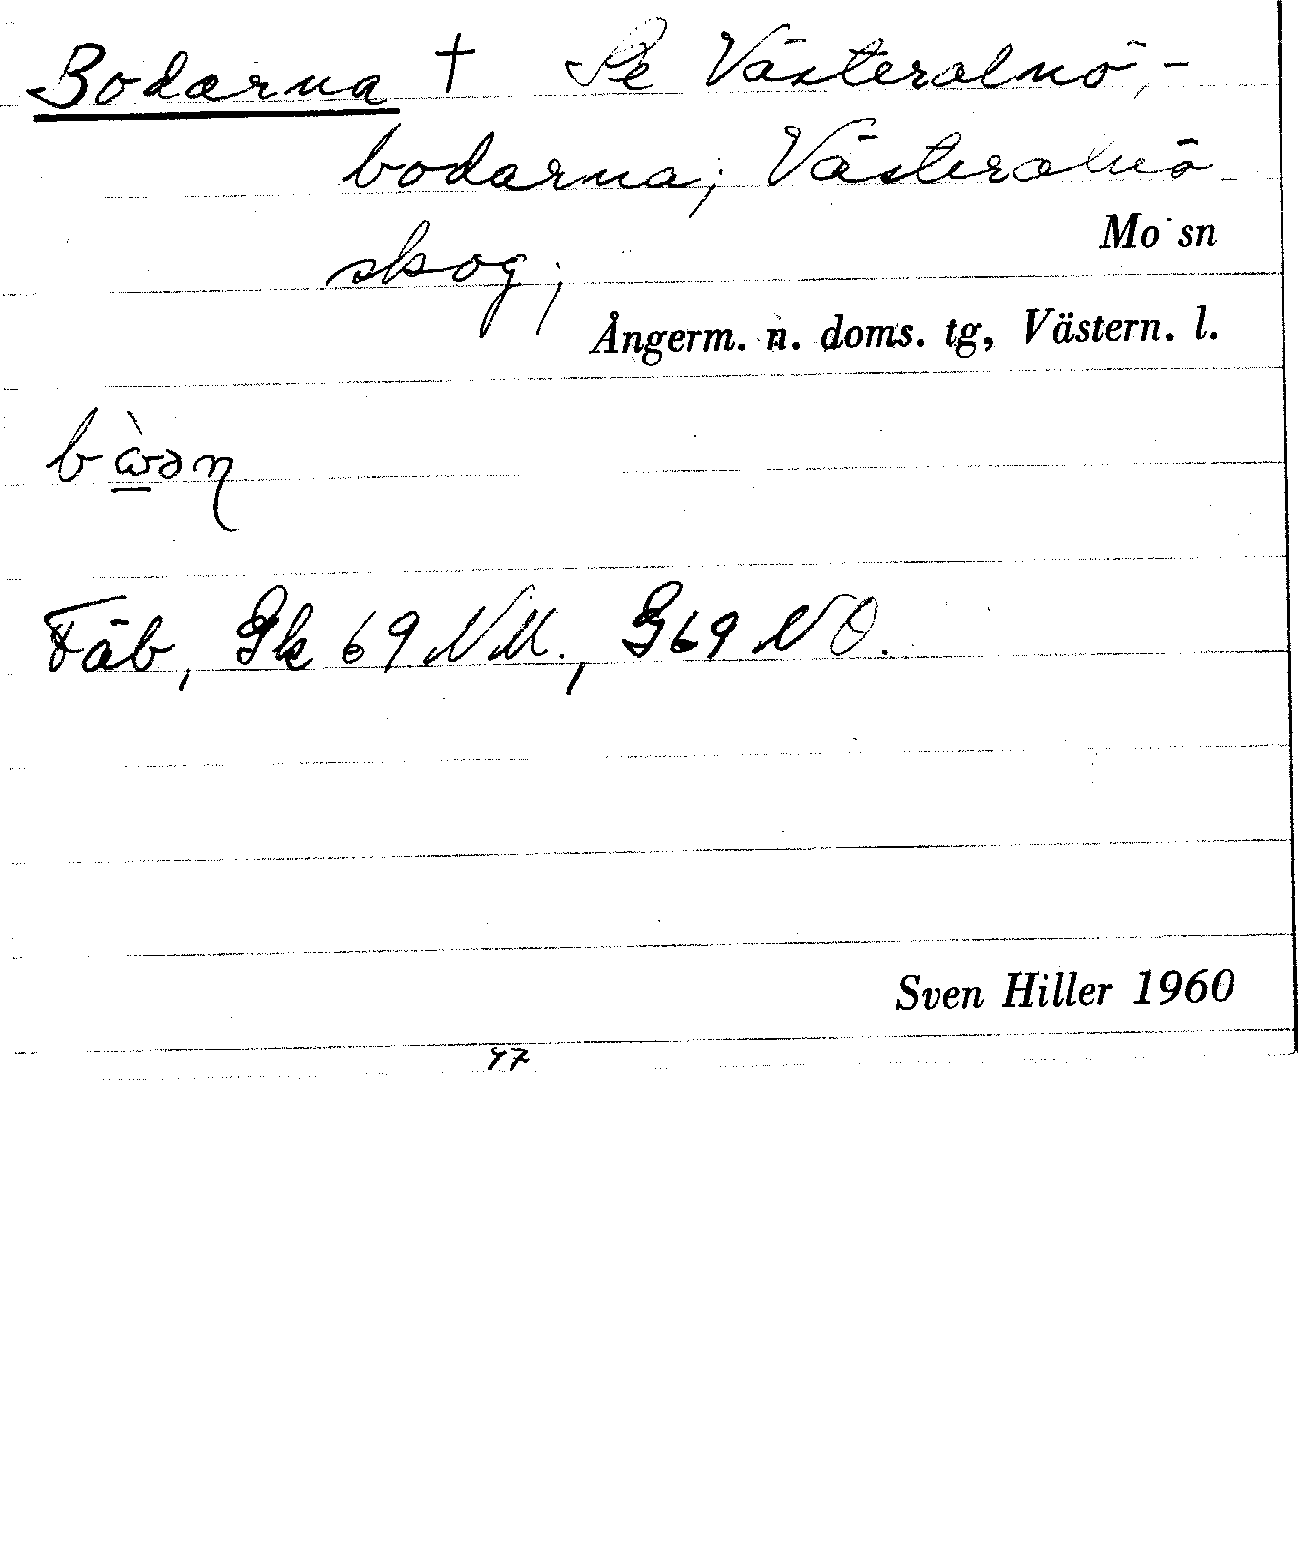 Bodarna † Se Västeralnö,-
bodarna; Västeralnö-
skog;
Mo sn
Ångerm. n. doms. tg, Västern. l.
Fäb, Gk 69 NV., G69 NO.
Sven Hiller 1960
47